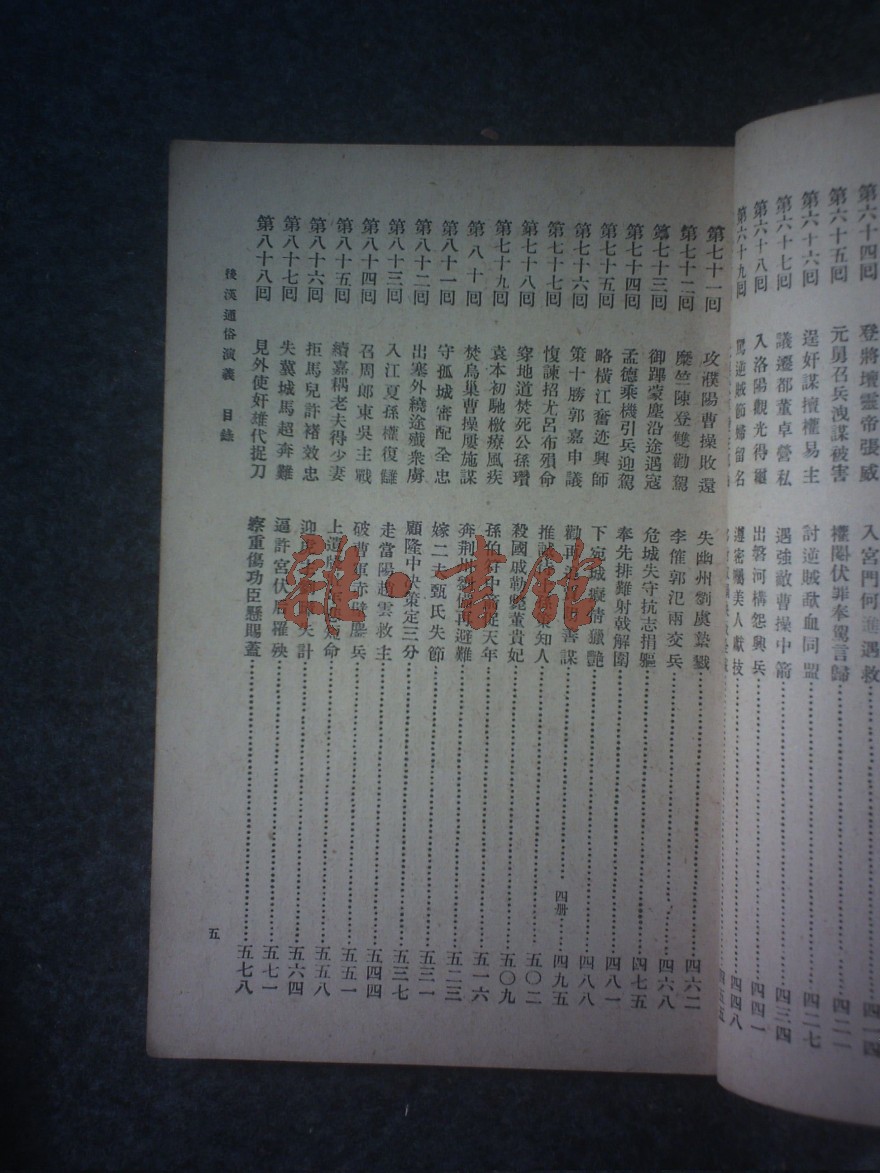 第六十四回 登將壇靈帝張威 入宮門何進遇救
第六十五回 元舅召兵洩謀被害 權閹伏罪奉駕言歸 四二一
第六十六回 逞奸謀擅權易主 討逆賊歃血同盟 四二七
第六十七回 議遷都董卓營私 遇強敵曹操中箭 四三四
第六十八回 入洛陽觀光得璽 出磐河構怨興兵 四四一
第六十九回 罵逆賊節婦留名 遵密囑美人獻技 四四八
第七十一回 攻濮陽曹操敗還 失幽州劉虞縶戮 四六二
第七十二回 糜竺陳登雙勸駕 李傕郭汜兩交兵 四六八
第七十三回 御蹕蒙塵沿途遇寇 危城失守抗志捐軀 四七五
第七十四回 孟德乘機引兵迎駕 奉先排難射戟解圍 四八一
第七十五回 略橫江奮迹興師 下宛城癡情獵艷 四八八
第七十六回 策十勝郭嘉申議 勸再 善謀 四册 四九五
第七十七回 愎諫招尤呂布殞命 推誠 知人 五〇二
第七十八回 穿地道焚死公孫瓚 殺國戚勒斃董貴妃 五〇九
第七十九回 袁本初馳檄療風疾 孫伯符中箭促天年 五一六
第八十回 焚烏巢曹操屢施謀 奔荊州劉備再避難 五二三
第八十一回 守孤城審配全忠 嫁二夫甄氏失節 五三一
第八十二回 出塞外繞途殲衆虜 顧隆中決策定三分 五三七
第八十三回 入江夏孫權復讎 走當陽趙雲救主 五四四
第八十四回 召周郎東吳主戰 破曹軍赤壁鏖兵 五五一
第八十五回 續嘉耦老夫得少妻 上遺 命 五五八
第八十六回 拒馬兒許褚效忠 迎 失計 五六四
第八十七回 失冀城馬超奔難 逼許宮伏后罹殃 五七一
第八十八回 見外使奸雄代捉刀 察重傷功臣懸賜蓋 五七八
後漢通俗演義 目錄
五
雜·書館